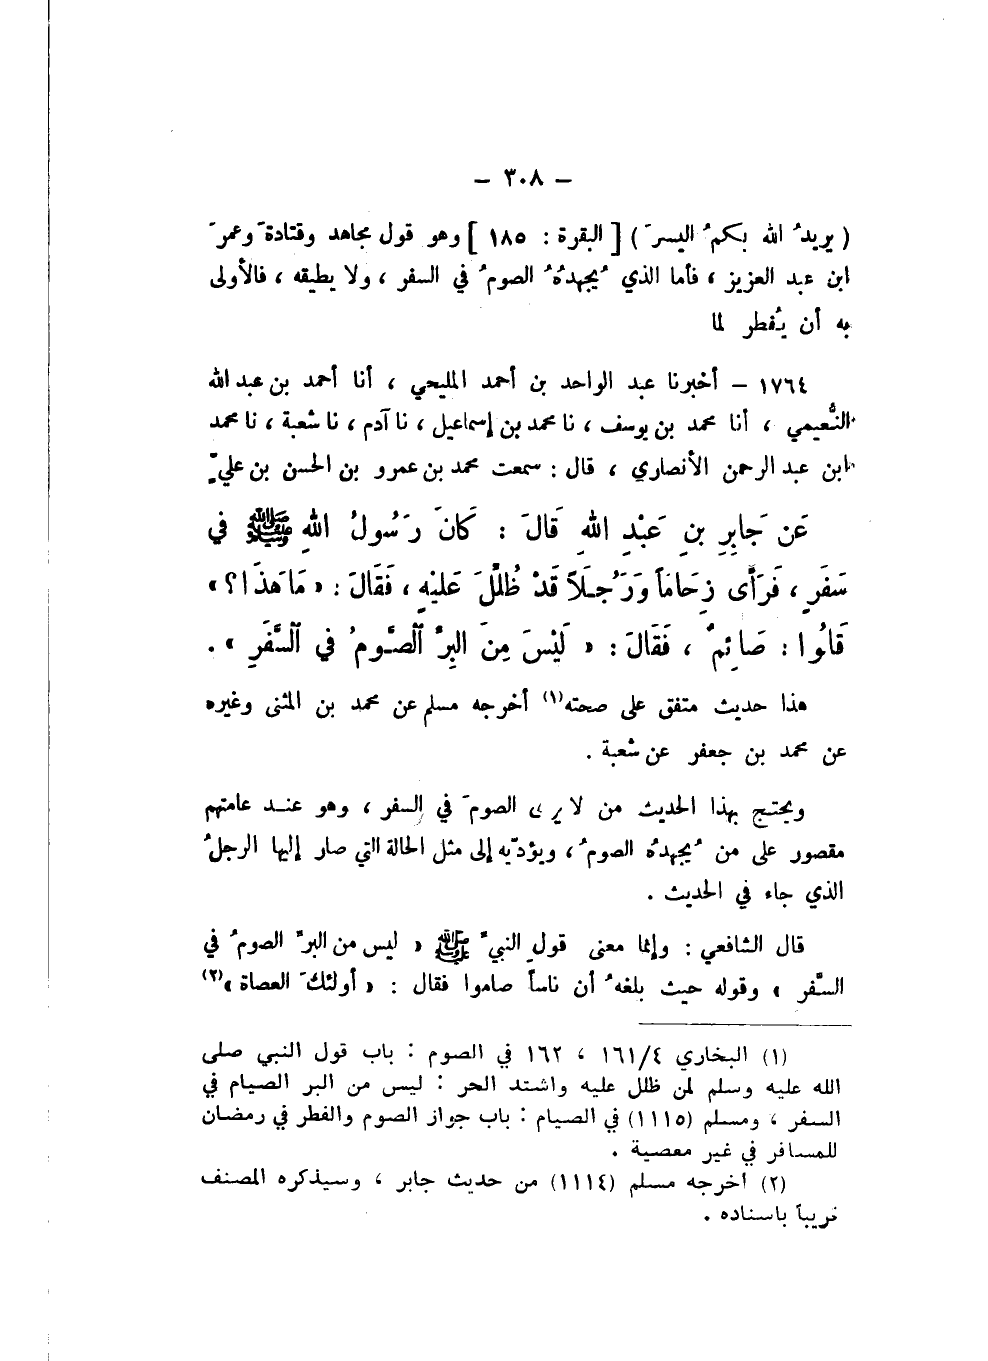 — ٣٠٨ —
( يريدُ الله بكمُ اليسرَ ) [ البقرة : ١٨٥ ] وهو قول مجاهد وقتادةَ وعمرَ
ابن عبد العزيز ، فأما الذي يُجهدُهُ الصومُ في السفر ، ولا يطيقه ، فالأولى
به أن يُفطر لما
١٧٦٤ – أخبرنا عبد الواحد بن أحمد المليحي ، أنا أحمد بن عبد الله
النُّعيمي ، أنا محمد بن يوسف ، نا محمد بن إسماعيل ، نا آدم ، نا شعبة ، نا محمد
ابن عبد الرحمن الأنصاري ، قال : سمعت محمد بن عمرو بن الحسن بن عليّ
عَن جَابِرِ بنِ عَبْدِ اللهِ قَالَ : كَانَ رَسُولُ اللهِ ﷺ في
سَفَرٍ ، فَرَأَى زِحَامَاً وَرَجُلَاً قَدْ ظُلِّلَ عَلَيْهِ ، فَقَالَ : « مَا هَذَا ؟ »
قَالُوا : صَائِمٌ ، فَقَالَ : « لَيْسَ مِنَ البِرِّ الصَّومُ في السَّفَرِ » .
هذا حديث متفق على صحته(١) أخرجه مسلم عن محمد بن المثنى وغيره
عن محمد بن جعفر عن شعبة .
ويحتج بهذا الحديث من لا يرى الصومَ في السفر ، وهو عند عامتهم
مقصور على من يُجهدُه الصومُ ، ويؤدّيه إلى مثل الحالة التي صار إليها الرجلُ
الذي جاء في الحديث .
قال الشافعي : وإنما معنى قولِ النبيِّ ﷺ « ليس من البرِّ الصومُ في
السَّفر » وقوله حيث بلغهُ أن ناساً صاموا فقال : « أولئكَ العصاة »(٢)
(١) البخاري ١٦١/٤ ، ١٦٢ في الصوم : باب قول النبي صلى
الله عليه وسلم لمن ظلل عليه واشتد الحر : ليس من البر الصيام في
السفر ، ومسلم (١١١٥) في الصيام : باب جواز الصوم والفطر في رمضان
للمسافر في غير معصية .
(٢) أخرجه مسلم (١١١٤) من حديث جابر ، وسيذكره المصنف
قريباً باسناده .